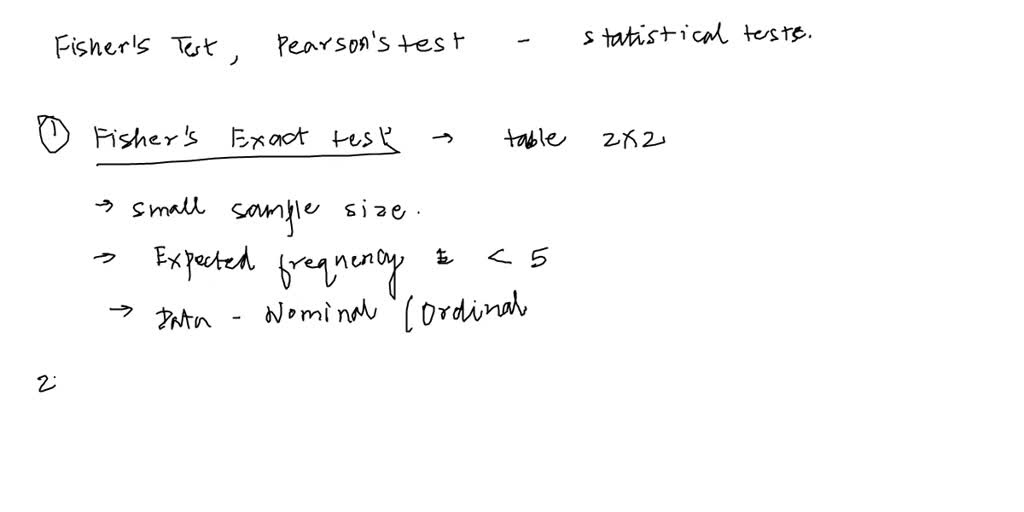 Fisher's Test, Pearson's test - statistical tests.
① Fisher's Exact test → table 2x2
→ small sample size.
→ Expected frequency < 5
→ Data - Nominal (Ordinal
2.